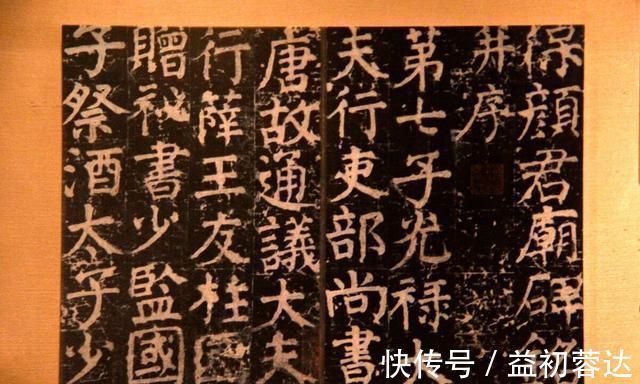 保顏君廟碑銘
并序
第七子光祿大
夫行吏部尚書
唐故通議大夫
行薛王友柱國
贈祕書少監國
子祭酒太子少
快传号 / 益初蓉达